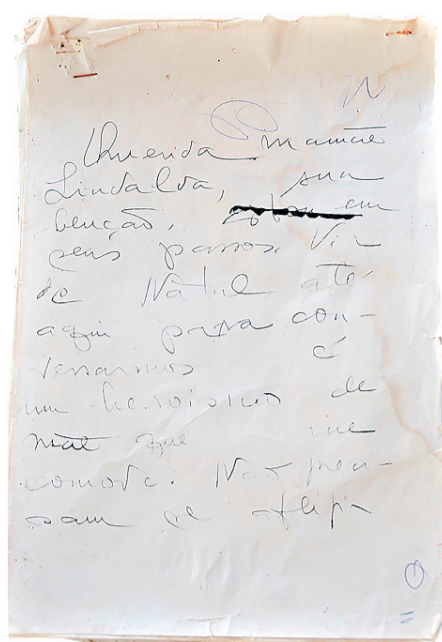 Querida Mamãe
Lindalva, sua
benção, estou em
seus passos. Vir
de Natal até
aqui para con-
versarmos é
um heroismo de
mãe que me
comove. Não preci-
sam se afligir